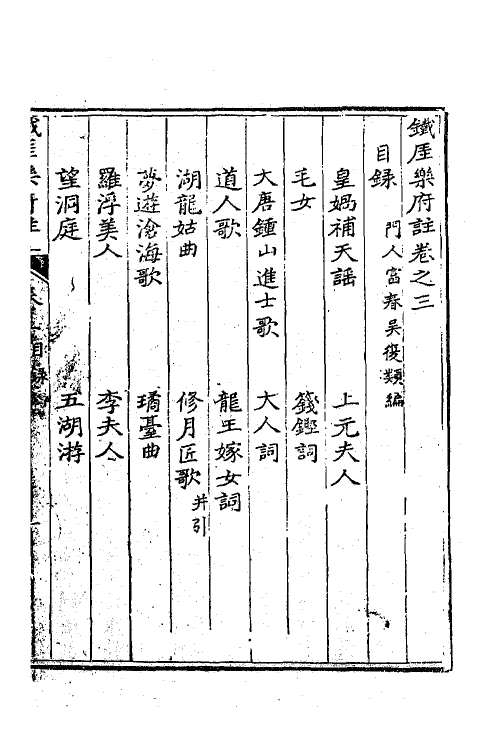 鐵厓樂府註卷之三
目録 門人富春吳復類編
皇媧補天謡 上元夫人
毛女 籛鏗詞
大唐鍾山進士歌 大人詞
道人歌 龍王嫁女詞
湖龍姑曲 修月匠歌 并引
夢遊滄海歌 璚臺曲
羅浮美人 李夫人
望洞庭 五湖游